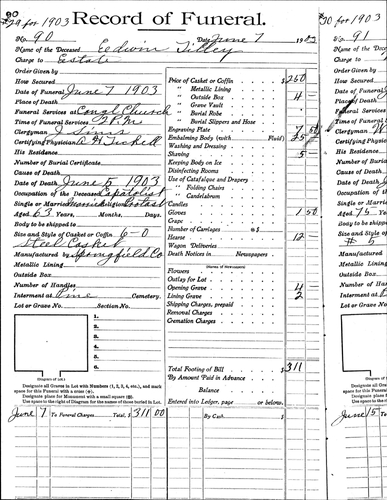 90
#29 for 1903 Record of Funeral.
No. 90 Date June 7 1903
Name of the Deceased Edwin Tilley
Charge to Estate
Order Given by
How Secured
Date of Funeral June 7 1903
Place of Death
Funeral Services at Congl Church
Time of Funeral Services 2 P.M.
Clergyman J Sims
Certifying Physician
His Residence
Number of Burial Certificate
Cause of Death
Date of Death June 5 1903
Occupation of the Deceased Capitalist
Single or Married Married Religion Protest
Aged 63 Years, Months, Days.
Body to be shipped to
Size and Style of Casket or Coffin 6-0
Steel Casket
Manufactured by Springfield Co
Metallic Lining
Outside Box
Number of Handles
Interment at Pine Cemetery.
Lot or Grave No. Section No.
1.
2.
3.
4.
5.
6.
(Diagram of Lot.)
Designate all Graves in Lot with Numbers (1, 2, 3, 4, etc.), and mark
space for this Funeral with a cross (+).
Designate place for Monument with a small square (□).
Use space to the right of Diagram for the names of those buried in Lot.
June 7 To Funeral Charges, Total, $ 311 00
Price of Casket or Coffin $ 250
" Metallic Lining
" Outside Box 4 —
" Grave Vault
" Burial Robe
" Burial Slippers and Hose
Engraving Plate
Embalming Body (with Fluid)
Washing and Dressing
Shaving 5 —
Keeping Body on Ice
Disinfecting Rooms
Use of Catafalque and Drapery
" Folding Chairs
" Candelabrum
Candles
Gloves 1 50
Crape
Number of Carriages @ $
Hearse 12 —
Wagon Deliveries
Death Notices in Newspapers
(Names of Newspapers)
Flowers
Outlay for Lot
Opening Grave 4 —
Lining Grave 2
Shipping Charges, prepaid
Removal Charges
Cremation Charges
Total Footing of Bill $ 311
By Amount Paid in Advance
Balance
Entered into Ledger, page or below.
By Cash $
#30 for 1903
No. 91
Name of the
Charge to
Order Given
How Secured
Date of Fune
Place of Dea
Funeral Serv
Time of Fune
Clergyman
Certifying P
His Residen
Number of B
Cause of Dea
Date of Dea
Occupation
Single or Ma
Aged 75 Ye
Body to be s
Size and Sty
# 5
Manufacture
Metallic Lin
Outside Box
Number of H
Interment at
Lot or Grave
Designate
space for this
Designate
Use space
June 15